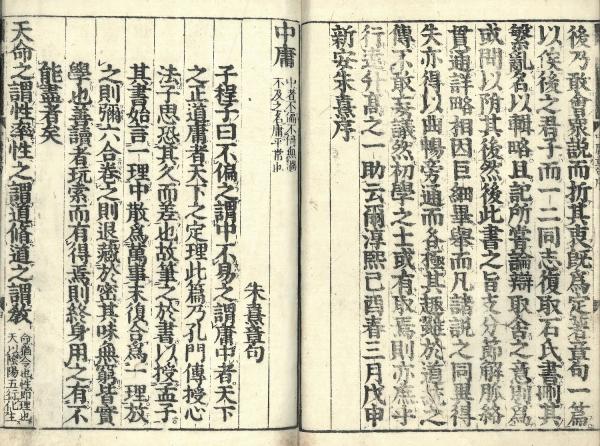 後乃敢會衆說而折其衷既爲定著章句一篇
以俟後之君子而一二同志復取石氏書刪其
繁亂名以輯略且記所嘗論辯取舍之意別爲
或問以附其後然後此書之旨支分節解脉絡
貫通詳略相因巨細畢舉而凡諸說之同異得
失亦得以曲暢旁通而各極其趣雖於道統之
傳不敢妄議然初學之士或有取焉則亦庶乎
行遠升高之一助云爾淳熙己酉春三月戊申
新安朱熹序
中庸 中者不偏不倚無過
不及之名庸平常也
朱熹章句
子程子曰不偏之謂中不易之謂庸中者天下
之正道庸者天下之定理此篇乃孔門傳授心
法子思恐其久而差也故筆之於書以授孟子
其書始言一理中散爲萬事末復合爲一理放
之則彌六合卷之則退藏於密其味無窮皆實
學也善讀者玩索而有得焉則終身用之有不
能盡者矣
天命之謂性率性之謂道脩道之謂敎 命猶令也性即理也
天以陰陽五行化生